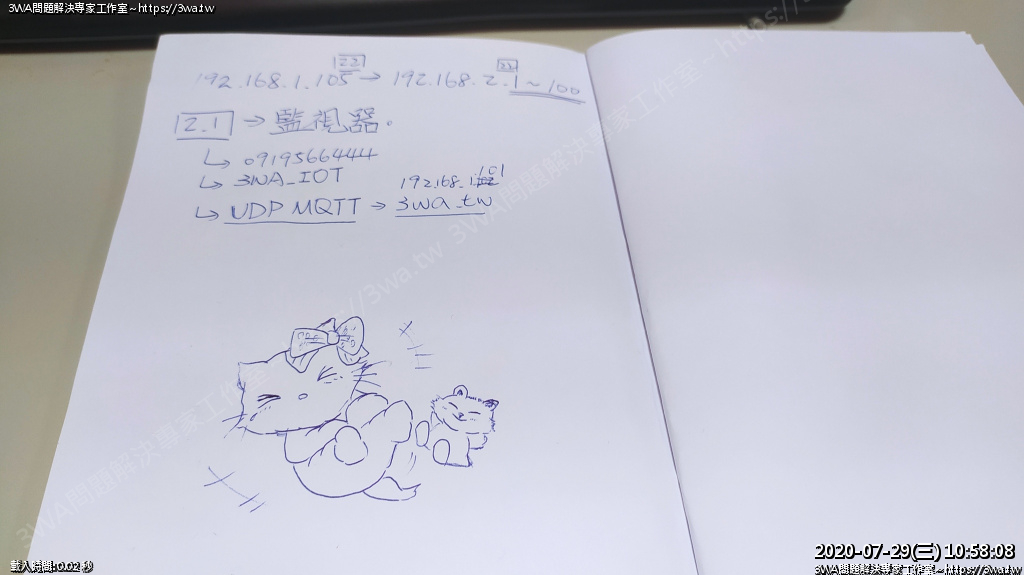 3WA問題解決專家工作室~https://3wa.tw
22 22
192.168.1.105 → 192.168.2.1~100
2.1 → 監視器.
↳ 0919566444
↳ 3WA_IOT
192.168.1.
↳ UDP MQTT → 3wa.tw
3WA問題解決專家工作室~https://3wa.tw 3WA問題解決專家工作室~https://
2020-07-29(三) 10:58:08
載入時間:0.02 秒
3WA問題解決專家工作室~https://3wa.tw